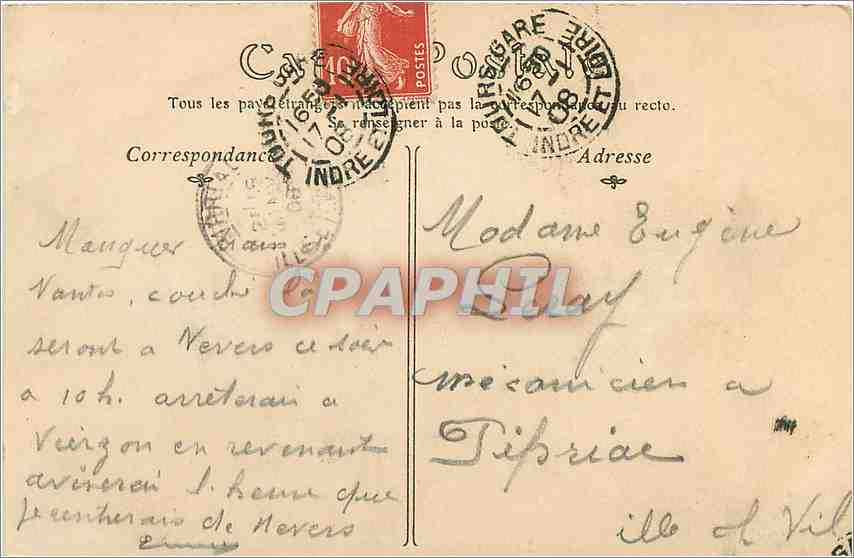 10
POSTES
TOURS GARE
16 50
17
08
INDRE ET LOIRE
TOURS GARE
16 50
17
08
INDRE ET LOIRE
Tous les pays étrangers n'acceptent pas la correspondance au recto.
Se renseigner à la poste.
Correspondance
Adresse
Manquer train de
Nantes, couché
seront a Nevers ce soir
a 10 h. arrêterai a
Vierzon en revenant
aviserai l'heure que
je rentrerais de Nevers
Madame Eugène
mécanicien a
Pipriac
ille et Vil
CPAPHIL